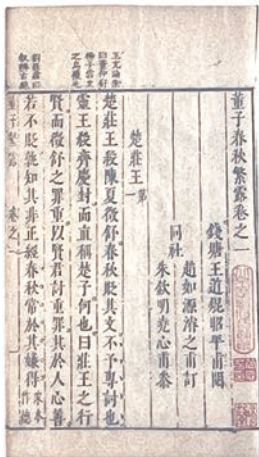 董子春秋繁露卷之一
錢塘王道焜昭平甫閱
趙如源濬之甫訂
同社
朱欽明堯心甫叅
楚莊王第一
楚莊王殺陳夏徵舒春秋貶其文不予專討也
靈王殺齊慶封而直稱楚子何也曰莊王之行
賢而徵舒之罪重以賢君討重罪其於人心善
若不貶孰知其非正經春秋常於其嫌得
董子繁露 卷之一